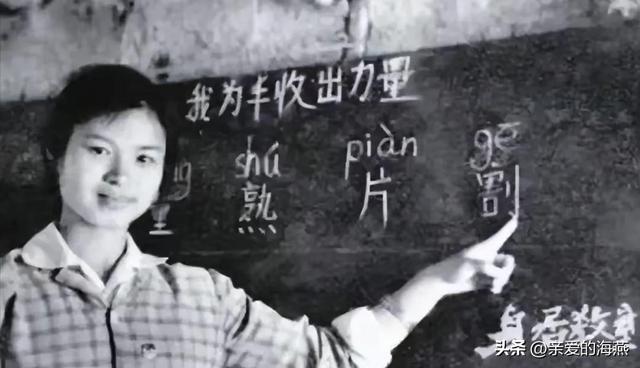 我为丰收出力量
shú piàn gē
熟 片 割
身居教
头条 @亲爱的海燕